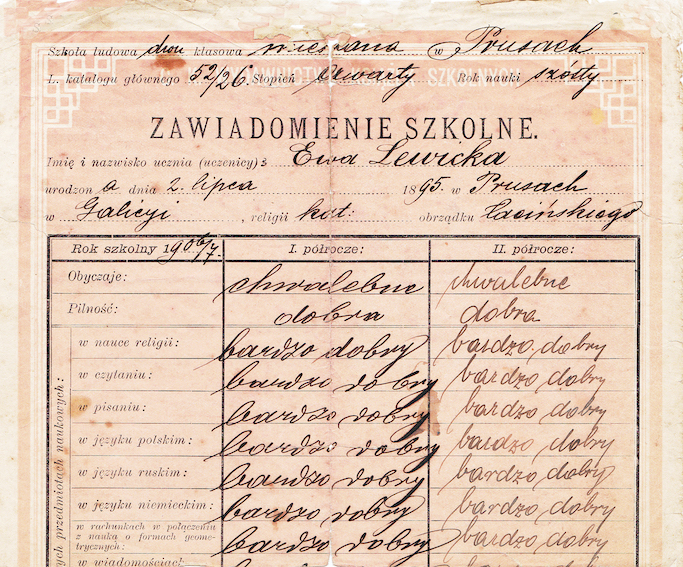 Szkoła ludowa dwu klasowa mieszana w Prusach
L. katalogu głównego 52/26. Stopień czwarty Rok nauki szósty
ZAWIADOMIENIE SZKOLNE.
Imię i nazwisko ucznia (uczenicy): Ewa Lewicka
urodzona dnia 2. lipca 1895. w Prusach
w Galicyi, religii kat: obrządku Łacińskiego
Rok szkolny 1906/7. I. półrocze: II. półrocze:
Obyczaje: chwalebne chwalebne
Pilność: dobra dobra
w nauce religii: bardzo dobry bardzo dobry
w czytaniu: bardzo dobry bardzo dobry
w pisaniu: bardzo dobry bardzo dobry
w języku polskim: bardzo dobry bardzo dobry
w języku ruskim: bardzo dobry bardzo dobry
w języku niemieckim: bardzo dobry bardzo dobry
w rachunkach w połączeniu
z nauką o formach geome-
trycznych: bardzo dobry bardzo dobry
w wiadomościach
przedmiotach naukowych: